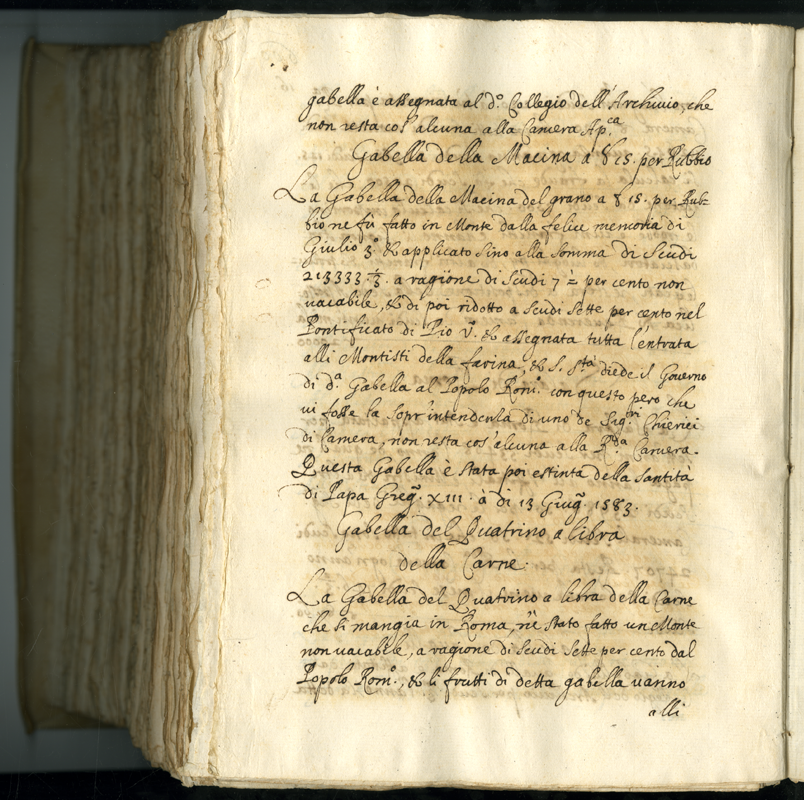 gabella è assegnata al d.º Collegio dell'Archivio, che
non resta cos' alcuna alla Camera Ap.ca
Gabella della Macina a 15. per Rubbio
La Gabella della Macina del grano a 15. per Rub=
bio ne fù fatto in Monte dalla felice memoria di
Giulio 3.º & applicato sino alla somma di Scudi
213333 1/3. a ragione di Scudi 7 1/2 per cento non
vacabile, & di poi ridotto a scudi sette per cento nel
Pontificato di Pio V.º & assegnata tutta l'entrata
alli Montisti della farina, & S. S.tà diede il Governo
di d.ª Gabella al Popolo Rom.º con questo però che
vi fosse la sopr'intendenza di uno de Sig.ri Chierici
di Camera, non resta cos' alcuna alla R.da Camera.
Questa Gabella è stata poi estinta della santità
di Papa Greg. XIII. à di 13 Giug. 1583.
Gabella del Quatrino a libra
della Carne.
La Gabella del Quatrino a libra della Carne
che si mangia in Roma, n'è stato fatto un Monte
non vacabile, a ragione di scudi sette per cento dal
Popolo Rom.º, & li frutti di detta gabella vanno
alli